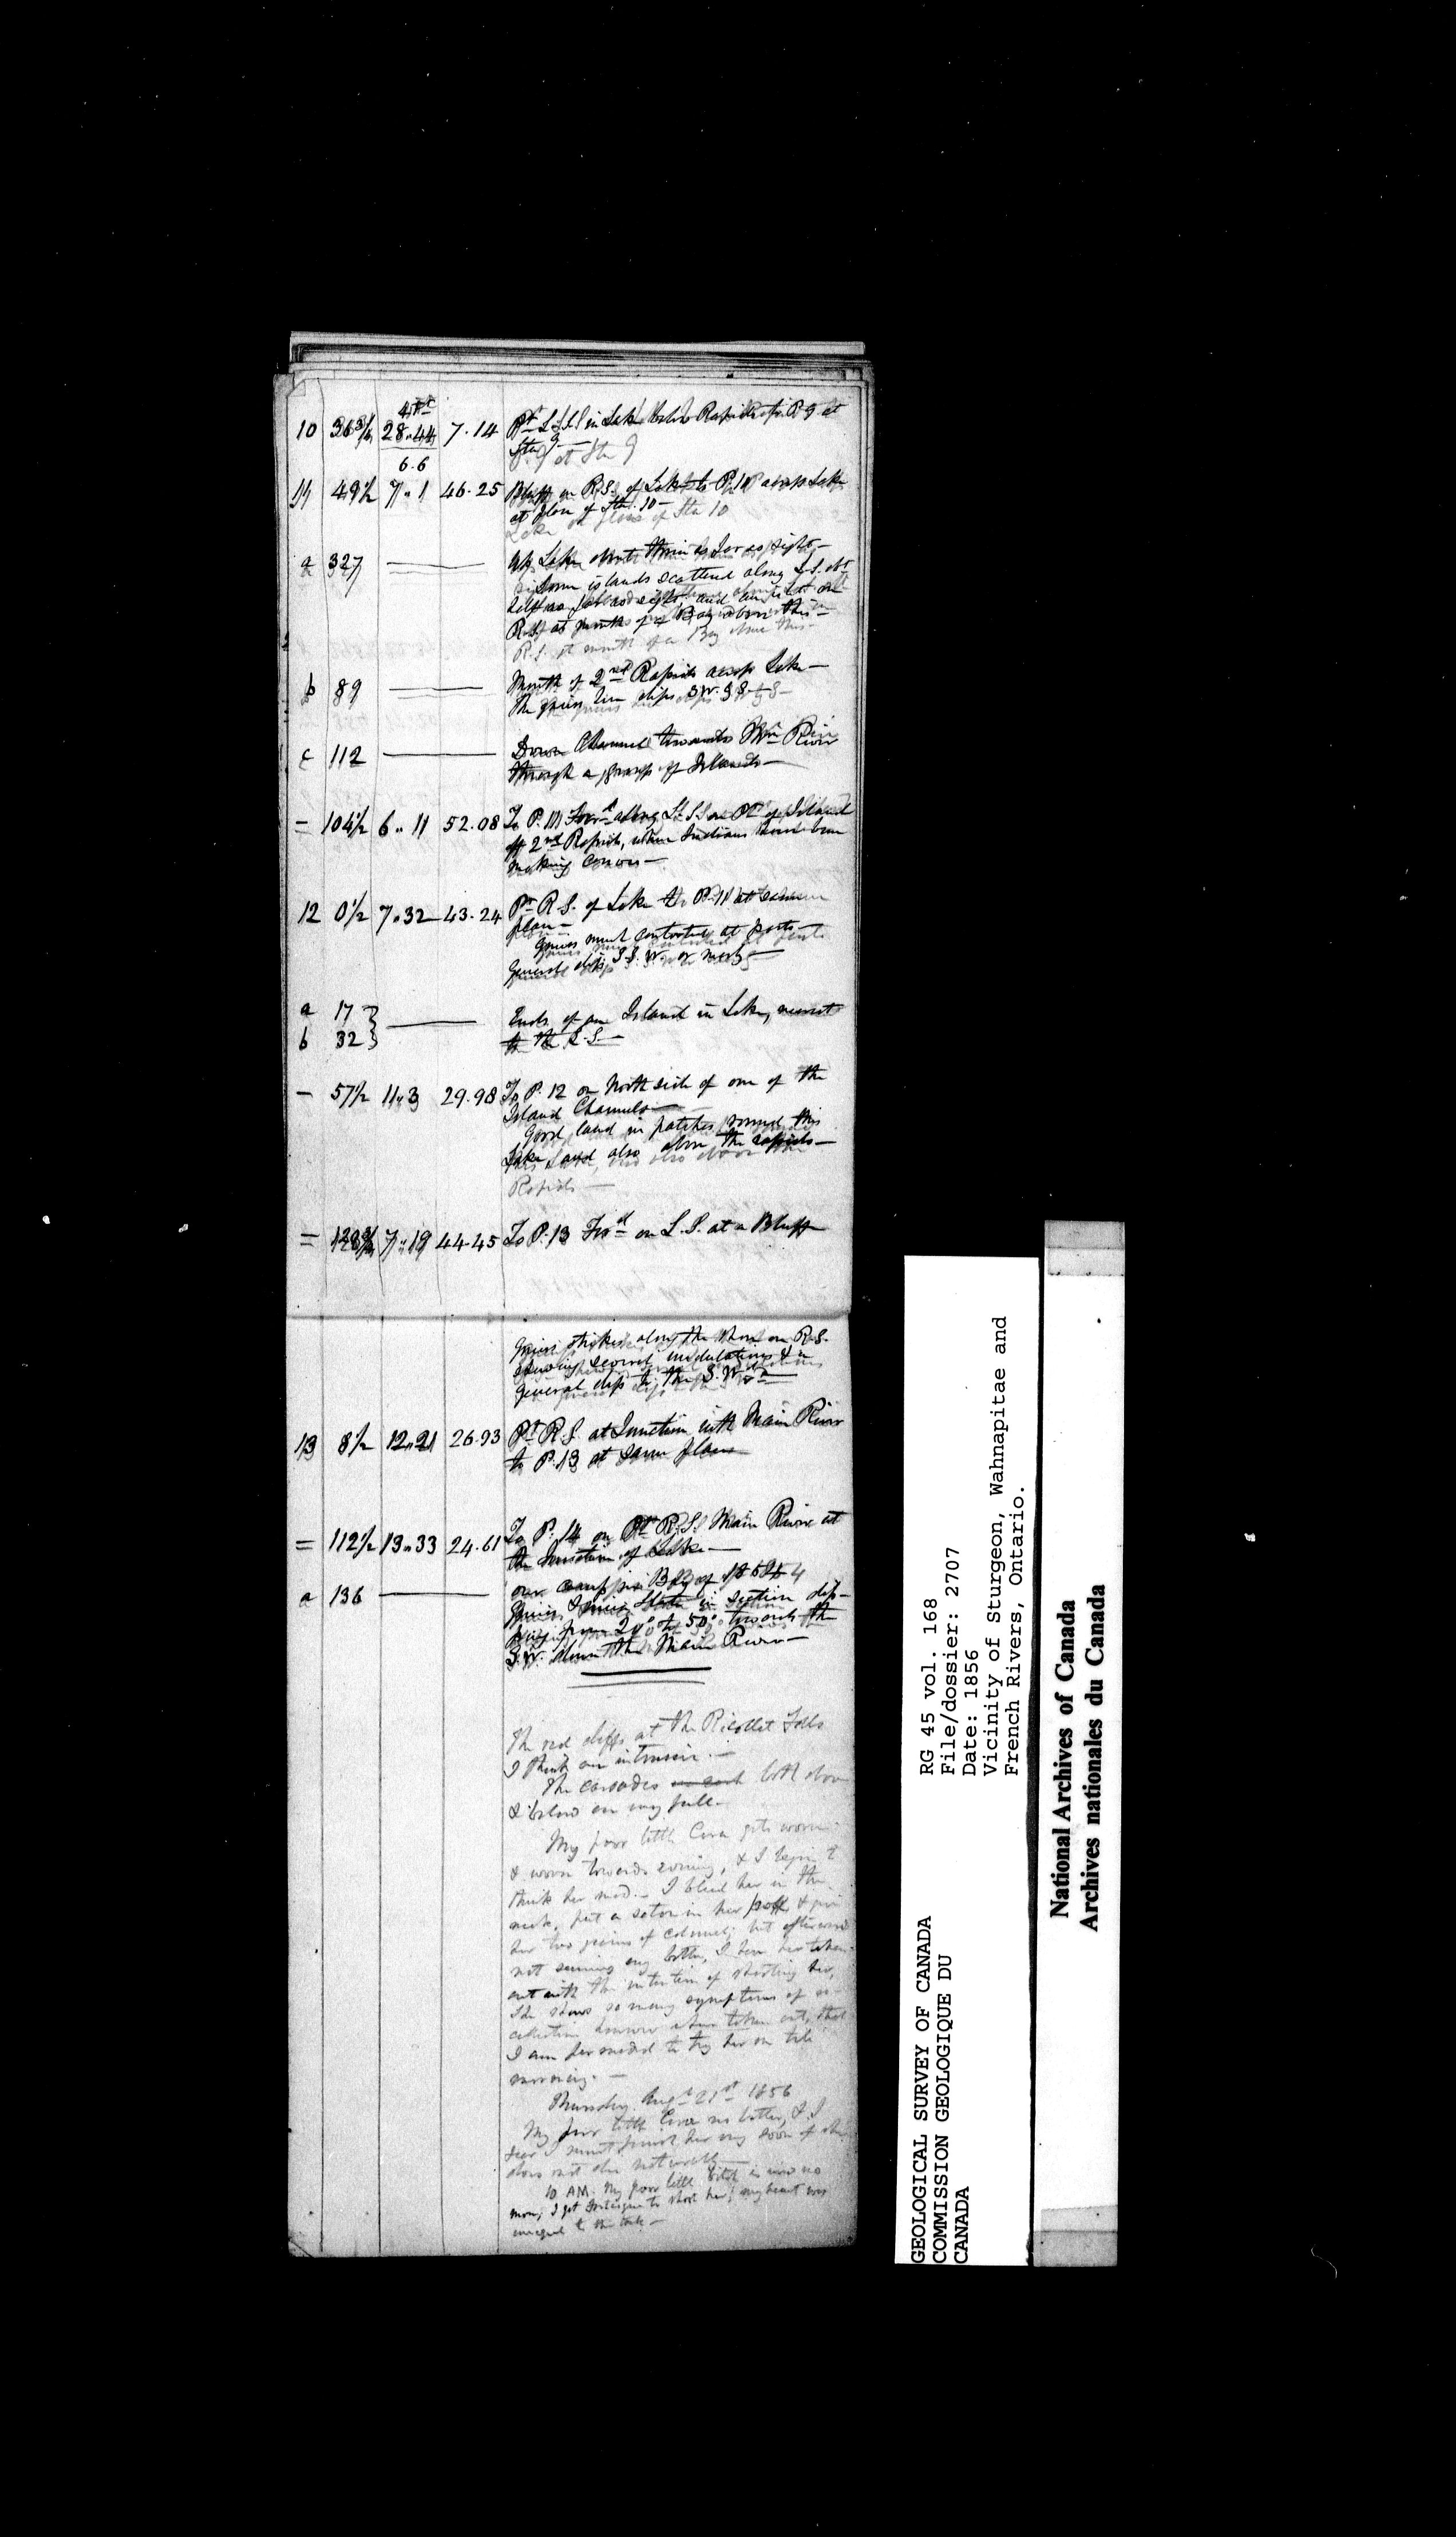 10 36¾ 28"44 7.14 Pt L.S. in Lake below Rapids to P. 9 at
6.6 Sta 9
11 49½ 7"1 46.25 Bluff on R.S. of Lake to P. 10 across Lake
at place of Sta. 10—
a 327 —— Up Lake as far as sight—
Some islands scattered along L.S.
as far as sight, and on
R.S. at mouth of a Bay above this—
b 89 —— Mouth of 2nd Rapids across Lake—
The gneiss here dips S.W. & S—
c 112 —— Down Channel towards Mn River
through a group of Islands—
= 104½ 6"11 52.08 To P. 11 Forwd along L.S. on Pt of Island
off 2nd Rapids, where Indians have been
making canoes—
12 0½ 7"32 43.24 Pt R.S. of Lake to P. 11 at same
place—
Gneiss much contorted at parts—
General dip S.S.W. or nearly—
a 17
b 32 —— Ends of an Island in Lake, nearest
to the R.S.—
– 57½ 11"3 29.98 To P. 12 on North side of one of the
Island Channels—
Good land in patches round this
Lake and also above the rapids—
= 128¾ 7"19 44.45 To P. 13 Forwd on L.S. at a Bluff
Gneiss strikes along the shore on R.S.
showing several undulations & a
general dip to the S.Wd
13 8½ 12"21 26.93 Pt R.S. at Junction with Main River
to P. 13 at same place
= 112½ 13"33 24.61 To P. 14 on Pt R.S. Main River at
the Junction of Lake—
our camp
a 136 —— Gneiss & mica slate in section dip-
ping from 20° to 50° towards the
S.W. down the Main River—
The red cliffs at the Ricollet Falls
I think are intrusive.—
The cascades both above
& below are very full—
My poor little Cora gets worse
& worse towards evening, & I begin to
think her mad.— I bleed her in the
neck, put a seton in her & give
her two grains of calomel; but afterwards
not seeming any better, I have her taken
out with the intention of shooting her,
She shows so many symptoms of re-
collection however when taken out, that
I am persuaded to try her on till
morning.—
Thursday Augt 21st 1856
My poor little Cora no better, & I
fear I must shoot her very soon if she
does not die naturally—
10 AM. My poor little bitch is now no
more; I got to shoot her; my heart was
unequal to the task—
RG 45 vol. 168
File/dossier: 2707
Date: 1856
Vicinity of Sturgeon, Wahnapitae and
French Rivers, Ontario.
GEOLOGICAL SURVEY OF CANADA
COMMISSION GEOLOGIQUE DU
CANADA
National Archives of Canada
Archives nationales du Canada